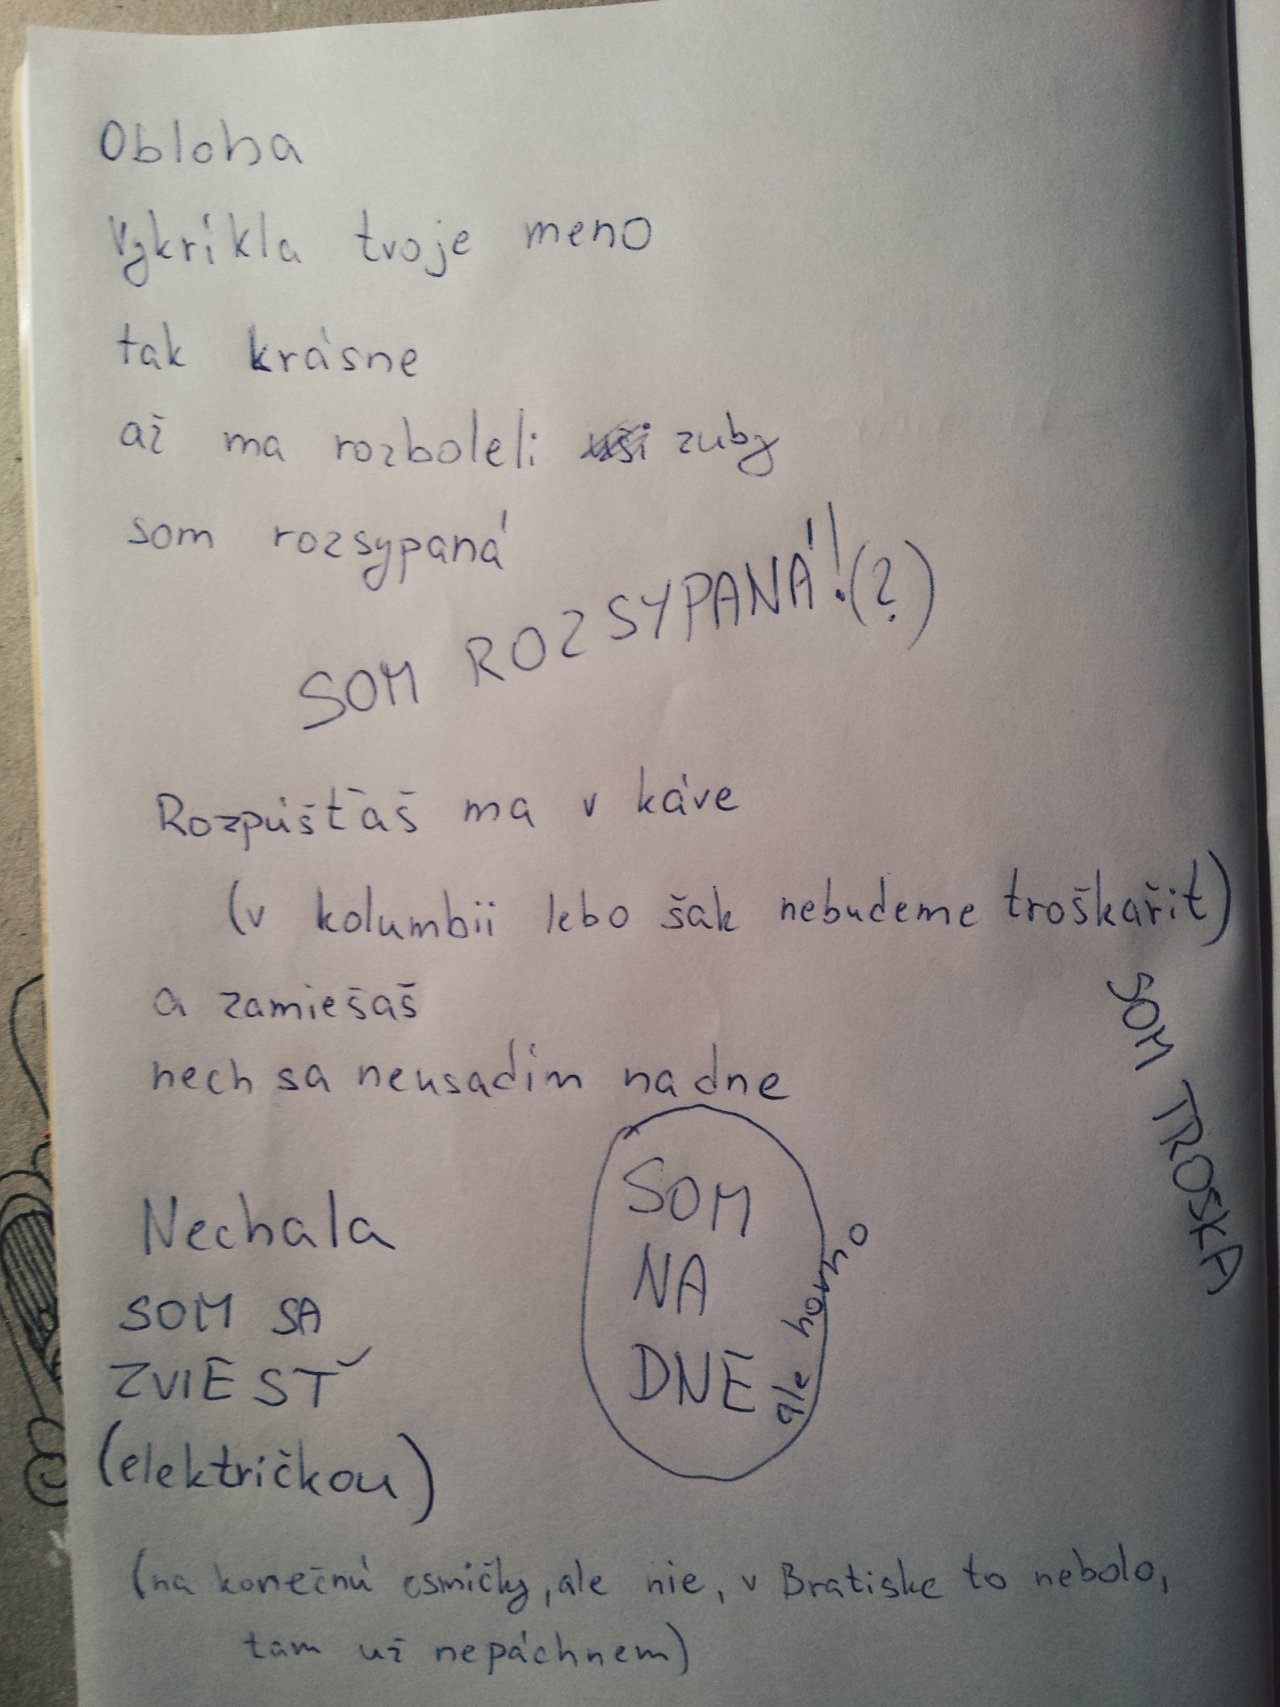 Obloha
Vykríkla tvoje meno
tak krásne
až ma rozboleli uši zuby
som rozsypaná
SOM ROZSYPANÁ!(?)
Rozpúšťaš ma v káve
(v kolumbii lebo šak nebudeme troškařit)
a zamiešaš
nech sa neusadím na dne
SOM TROSKA
SOM
NA
DNE
ale horno
Nechala
SOM SA
ZVIESŤ
(električkou)
(na konečnú osmičky, ale nie, v Bratiske to nebolo,
tam už nepáchnem)